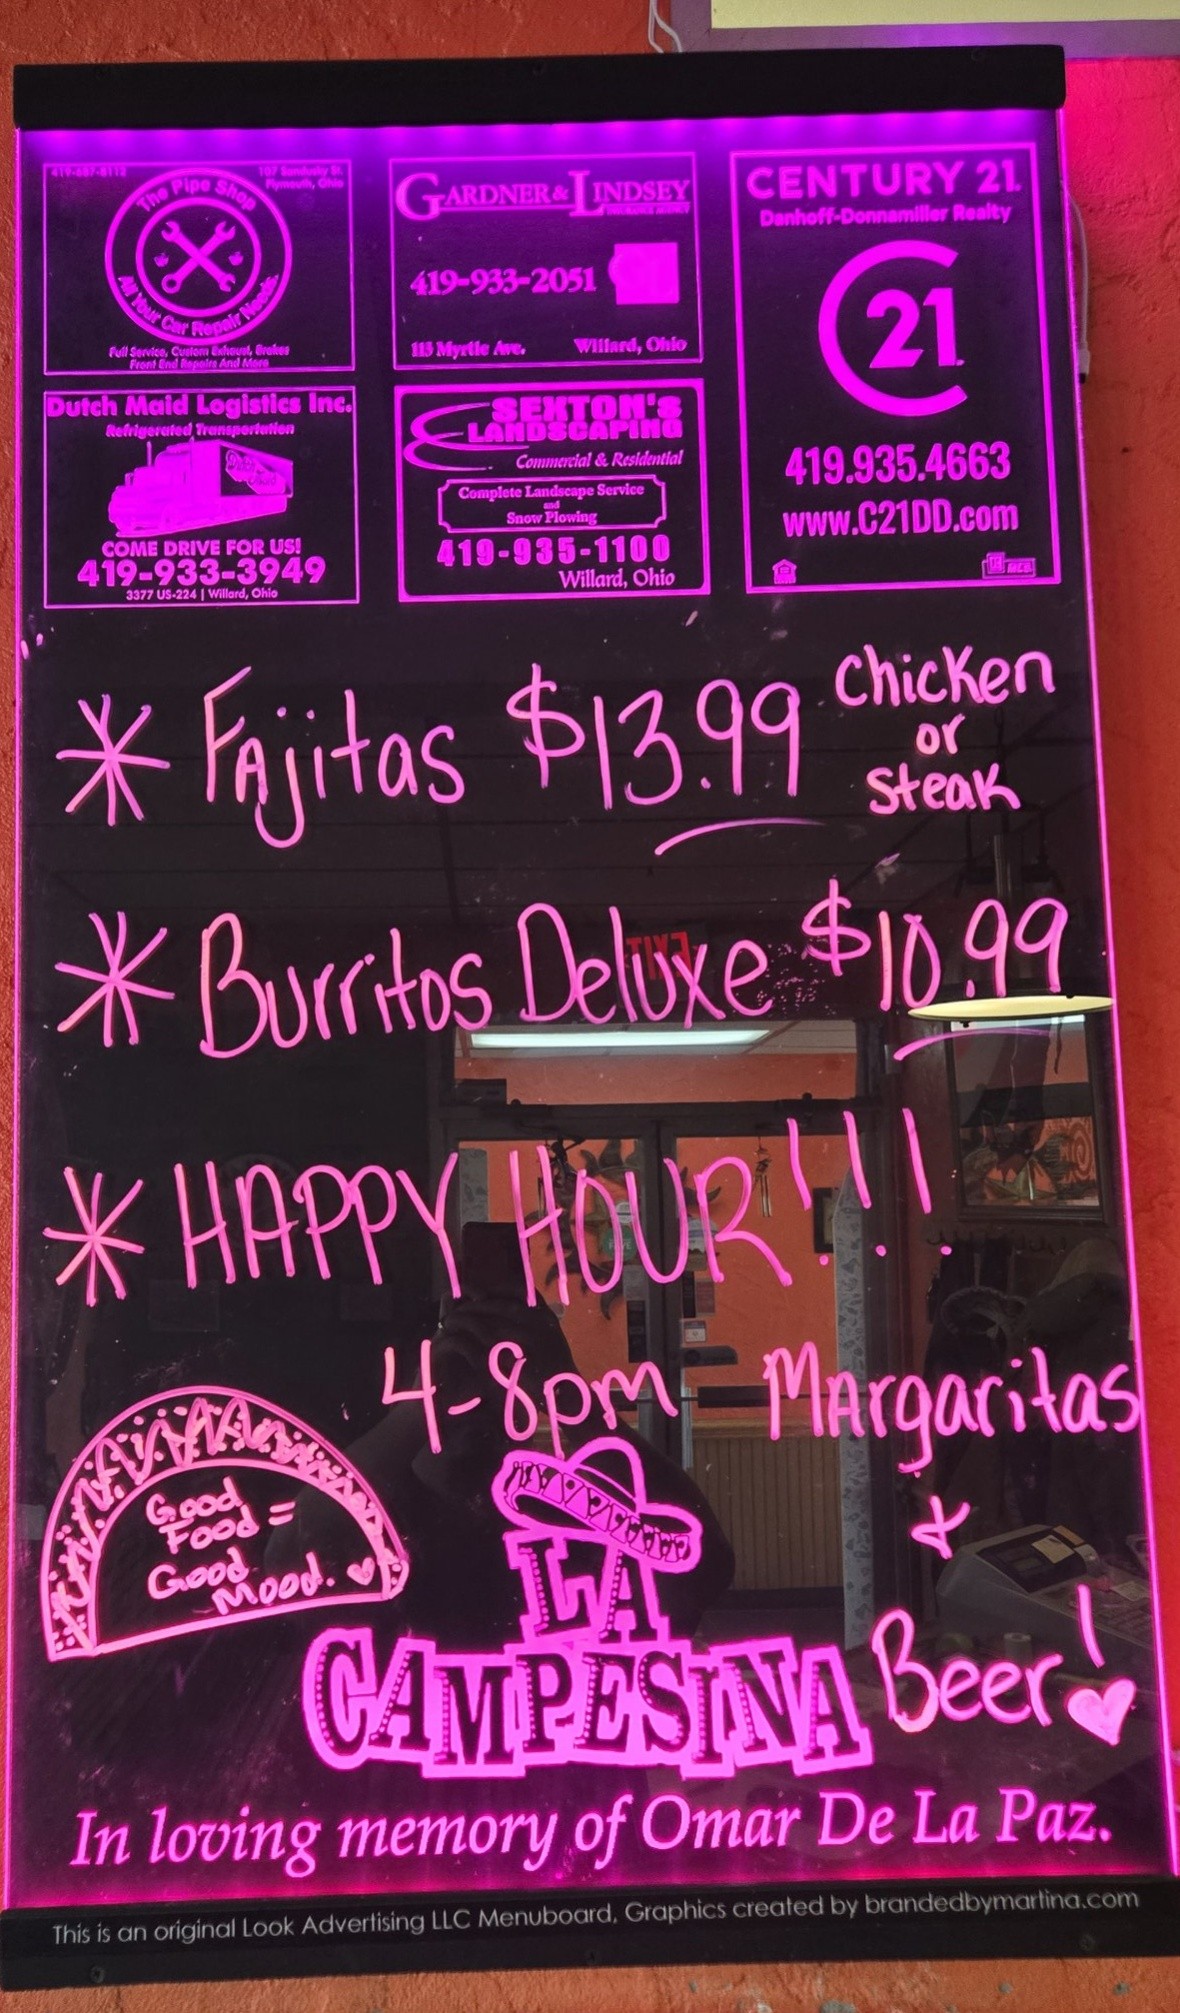 419-687-8112
107 Sandusky St.
Plymouth, Ohio
The Pipe Shop
All Your Car Repair Needs.
Full Service, Custom Exhaust, Brakes
Front End Repairs And More
GARDNER & LINDSEY
INSURANCE AGENCY
419-933-2051
113 Myrtle Ave. Willard, Ohio
CENTURY 21.
Danhoff-Donnamiller Realty
C21
419.935.4663
www.C21DD.com
Dutch Maid Logistics Inc.
Refrigerated Transportation
Dutch
Maid
COME DRIVE FOR US!
419-933-3949
3377 US-224 | Willard, Ohio
SEXTON'S
LANDSCAPING
Commercial & Residential
Complete Landscape Service
and
Snow Plowing
419-935-1100
Willard, Ohio
* Fajitas $13.99 Chicken
or
Steak
* Burritos Deluxe $10.99
EXIT
* HAPPY HOUR!!!
4-8pm Margaritas
&
Beer!
Good
Food =
Good
Mood.
LA
CAMPESINA
In loving memory of Omar De La Paz.
This is an original Look Advertising LLC Menuboard, Graphics created by brandedbymartina.com